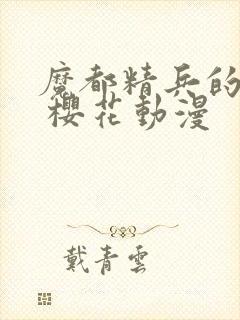 魔都精兵的
櫻花動漫
戴青雲